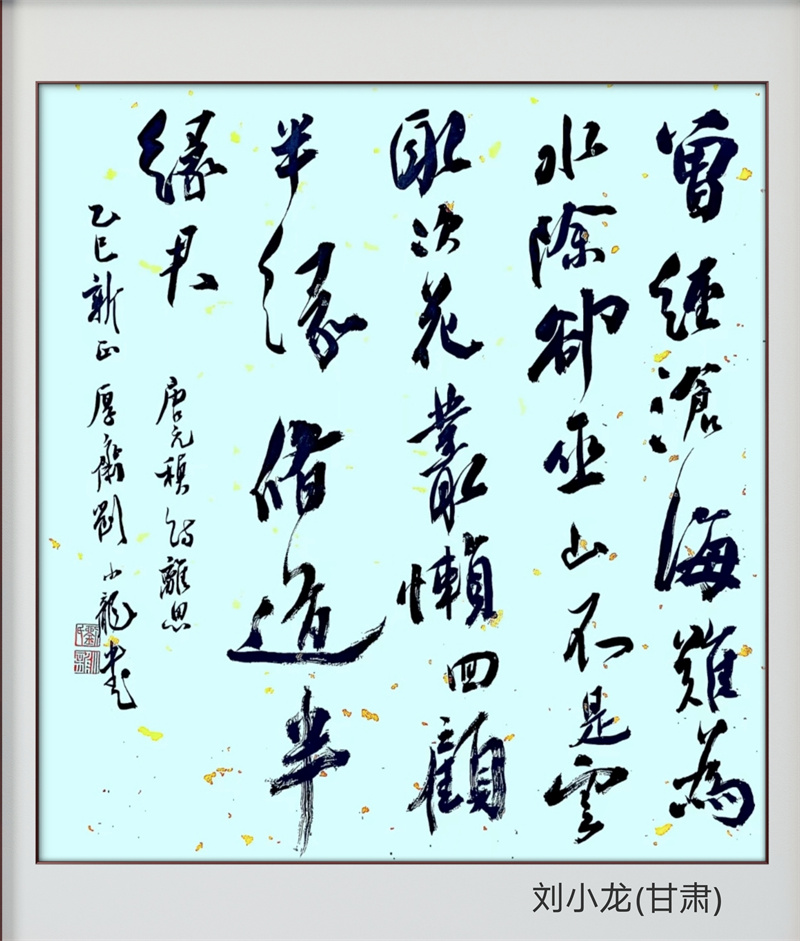 曾經滄海難為
水除卻巫山不是雲
取次花叢懶回顧
半緣脩道半
緣君
唐元稹詩離思
乙巳新正 厚齋劉小龍書
刘小龙(甘肃)